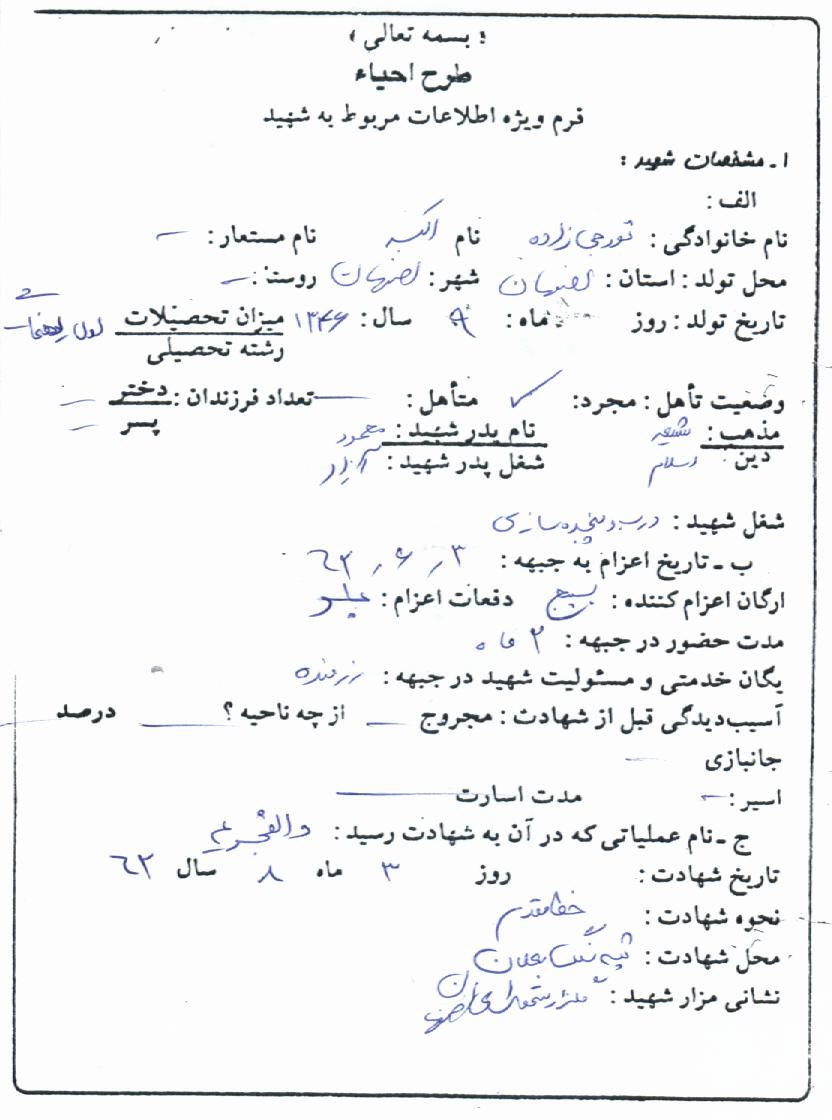 « بسمه تعالی »
طرح احیاء
فرم ویژه اطلاعات مربوط به شهید
۱ـ مشخصات شهید :
الف :
نام خانوادگی : تورجی زاده نام اکبر نام مستعار : —
محل تولد : استان : اصفهان شهر : اصفهان روستا : —
تاریخ تولد : روز ماه : ۹ سال : ۱۳۴۶ میزان تحصیلات اول راهنمائی
رشته تحصیلی
وضعیت تأهل : مجرد : ✓ متأهل : — تعداد فرزندان : دختر —
پسر —
مذهب : شیعه نام پدر شهید : محمود
دین : اسلام شغل پدر شهید :
شغل شهید : درب و پنجره سازی
ب ـ تاریخ اعزام به جبهه : ۳ / ۶ / ۶۲
ارگان اعزام کننده : بسیج دفعات اعزام :
مدت حضور در جبهه : ۲ ماه
یگان خدمتی و مسئولیت شهید در جبهه : رزمنده
آسیب‌دیدگی قبل از شهادت : مجروح — از چه ناحیه ؟ — درصد
جانبازی —
اسیر : — مدت اسارت —
ج ـ نام عملیاتی که در آن به شهادت رسید : والفجر ۴
تاریخ شهادت : روز ۳ ماه ۸ سال ۶۲
نحوه شهادت : خط مقدم
محل شهادت : تپه
نشانی مزار شهید : گلزار شهدای اصفهان